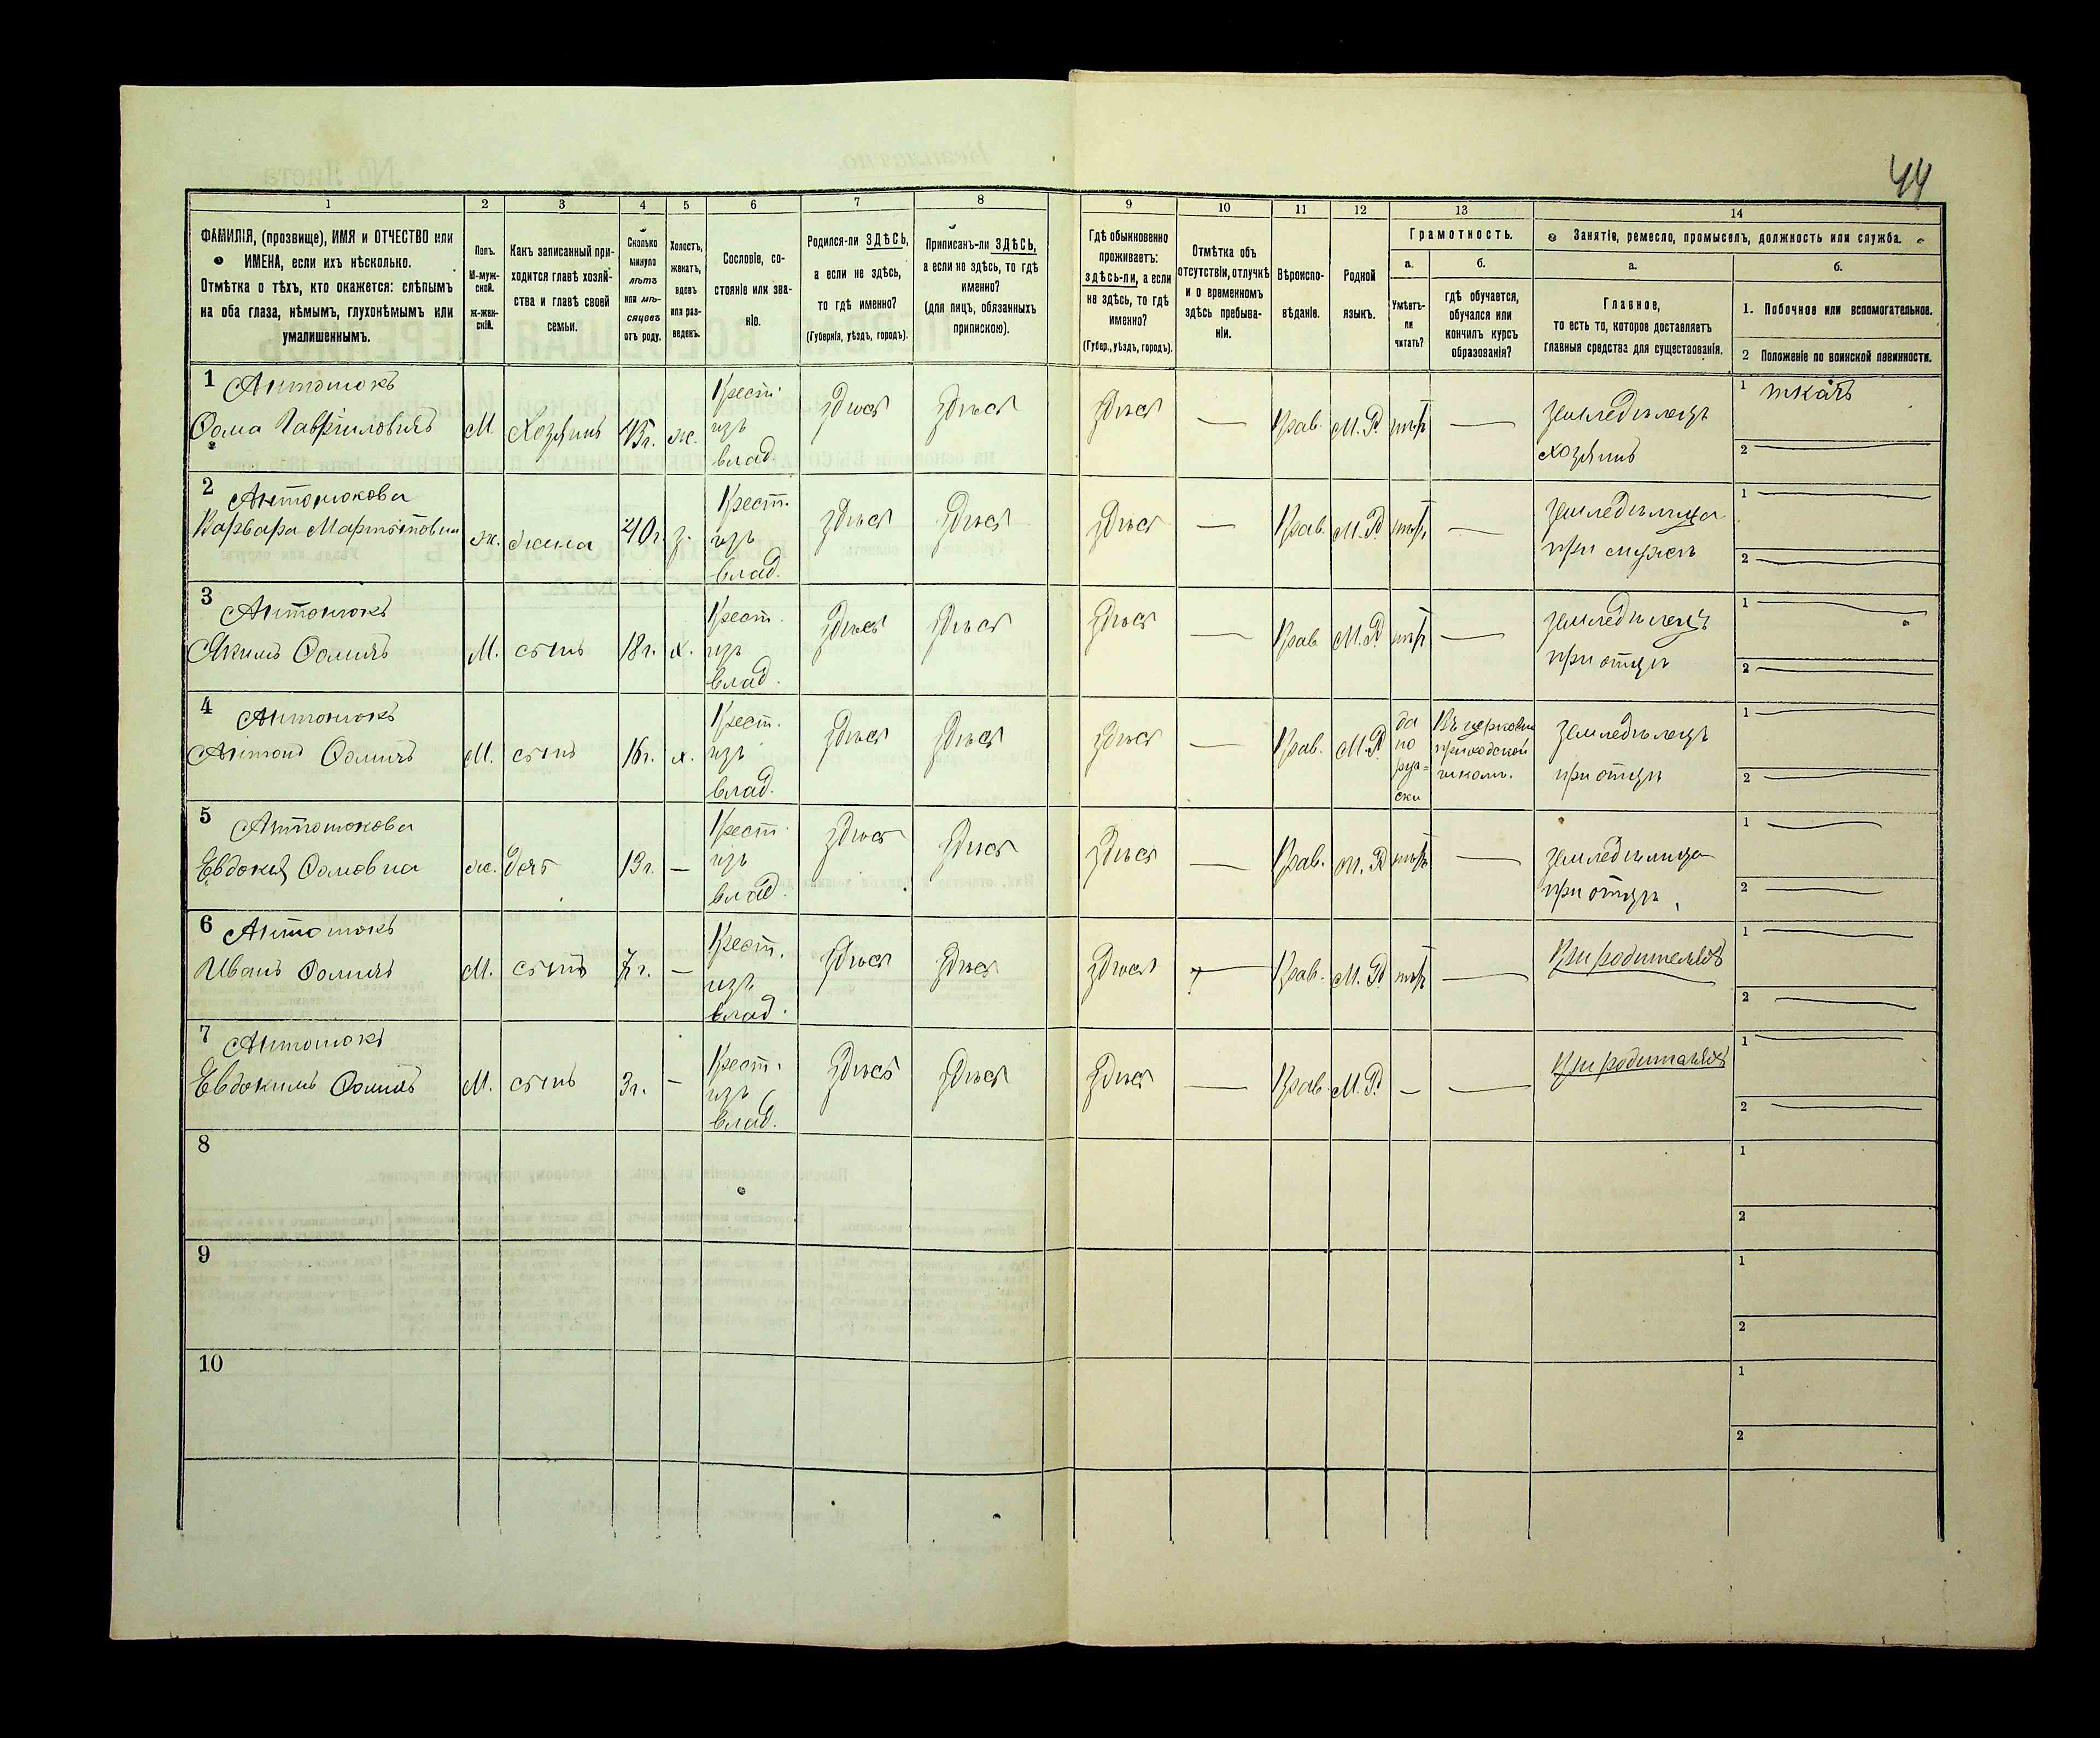 44
1
2
3
4
5
6
7
8
9
10
11
12
13
14
ФАМИЛІЯ, (прозвище), ИМЯ и ОТЧЕСТВО или
ИМЕНА, если ихъ нѣсколько.
Отмѣтка о тѣхъ, кто окажется: слѣпымъ
на оба глаза, нѣмымъ, глухонѣмымъ или
умалишеннымъ.
Полъ.
М-муж-
ской.
ж-жен-
скій.
Какъ записанный при-
ходится главѣ хозяй-
ства и главѣ своей
семьи.
Сколько
минуло
лѣтъ
или мѣ-
сяцевъ
отъ роду.
Холостъ,
женатъ,
вдовъ
или раз-
веденъ.
Сословіе, со-
стояніе или зва-
ніе.
Родился-ли ЗДѢСЬ,
а если не здѣсь,
то гдѣ именно?
(Губернія, уѣздъ, городъ).
Приписанъ-ли ЗДѢСЬ,
а если не здѣсь, то гдѣ
именно?
(для лицъ, обязанныхъ
припискою).
Гдѣ обыкновенно
проживаетъ:
здѣсь-ли, а если
не здѣсь, то гдѣ
именно?
(Губер., уѣздъ, городъ).
Отмѣтка объ
отсутствіи, отлучкѣ
и о временномъ
здѣсь пребыва-
ніи.
Вѣроиспо-
вѣданіе.
Родной
языкъ.
Грамотность.
а.
Умѣетъ-
ли
читать?
б.
гдѣ обучается,
обучался или
кончилъ курсъ
образованія?
Занятіе, ремесло, промыселъ, должность или служба.
а.
Главное,
то есть то, которое доставляетъ
главныя средства для существованія.
б.
1. Побочное или вспомогательное.
2 Положеніе по воинской повинности.
1 Антонюкъ
Ѳома Гавриловичъ М. Хозяинъ 45г. ж. Крест. изъ влад. здѣсь здѣсь здѣсь — Прав. М.Р. нѣтъ — земледѣлецъ хозяинъ
1 ткачъ
2
2 Антонюкова
Варвара ж. жена 40г. з. Крест. изъ влад. здѣсь здѣсь здѣсь — Прав. М.Р. нѣтъ — земледѣлица при мужѣ
1 —
2 —
3 Антонюкъ
Якимъ Ѳоминъ М. сынъ 18г. х. Крест. изъ влад. здѣсь здѣсь здѣсь — Прав. М.Р. нѣтъ — земледѣлецъ при отцѣ
1 —
2 —
4 Антонюкъ
Антонъ Ѳоминъ М. сынъ 16г. х. Крест. изъ влад. здѣсь здѣсь здѣсь — Прав. М.Р. да по рус-ски Въ церковно приходской школѣ. земледѣлецъ при отцѣ
1 —
2 —
5 Антонюкова
Евдокія Ѳомовна ж. дочь 13г. — Крест. изъ влад. здѣсь здѣсь здѣсь — Прав. М.Р. нѣтъ — земледѣлица при отцѣ
1 —
2 —
6 Антонюкъ
Иванъ Ѳоминъ М. сынъ 7г. — Крест. изъ влад. здѣсь здѣсь здѣсь — Прав. М.Р. нѣтъ — При родителяхъ
1 —
2 —
7 Антонюкъ
Евдокимъ Ѳоминъ М. сынъ 3г. — Крест. изъ влад. здѣсь здѣсь здѣсь — Прав. М.Р. — — При родителяхъ
1 —
2 —
8
1
2
9
1
2
10
1
2